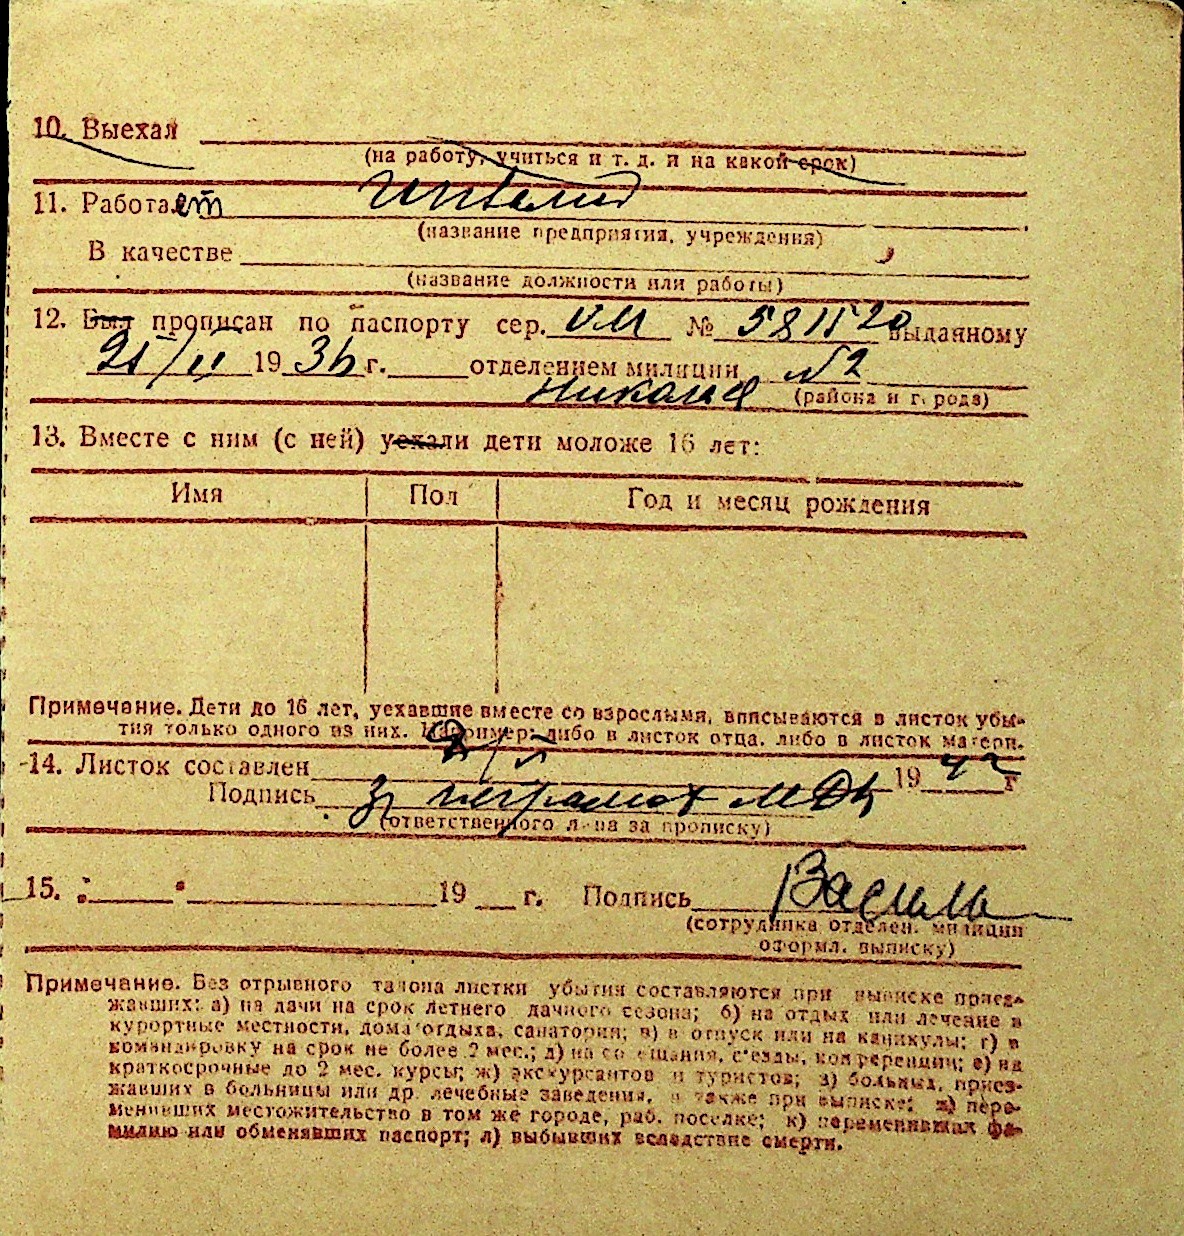 10. Выехал
(на работу, учиться и т. д. и на какой срок)
11. Работает
(название предприятия, учреждения)
В качестве
(название должности или работы)
12. Был прописан по паспорту сер. № 581520 выданному
21/II 1936 г. отделением милиции №2
(района и города)
13. Вместе с ним (с ней) уехали дети моложе 16 лет:
Имя Пол Год и месяц рождения
Примечание. Дети до 16 лет, уехавшие вместе со взрослыми, вписываются в листок убы-
тия только одного из них. Например: либо в листок отца, либо в листок матери.
14. Листок составлен 19 42 г
Подпись
(ответственного лица за прописку)
15. 19 г. Подпись
(сотрудника отделен. милиции
оформл. выписку)
Примечание. Без отрывного талона листки убытия составляются при выписке приез-
жавших: а) на дачи на срок летнего дачного сезона; б) на отдых или лечение в
курортные местности, дома отдыха, санатории; в) в отпуск или на каникулы; г) в
командировку на срок не более 2 мес.; д) на совещания, съезды, конференции; е) на
краткосрочные до 2 мес. курсы; ж) экскурсантов и туристов; з) больных, приез-
жавших в больницы или др. лечебные заведения, а также при выписке: и) пере-
менивших местожительство в том же городе, раб. поселке; к) переменивших фа-
милию или обменявших паспорт; л) выбывших вследствие смерти.